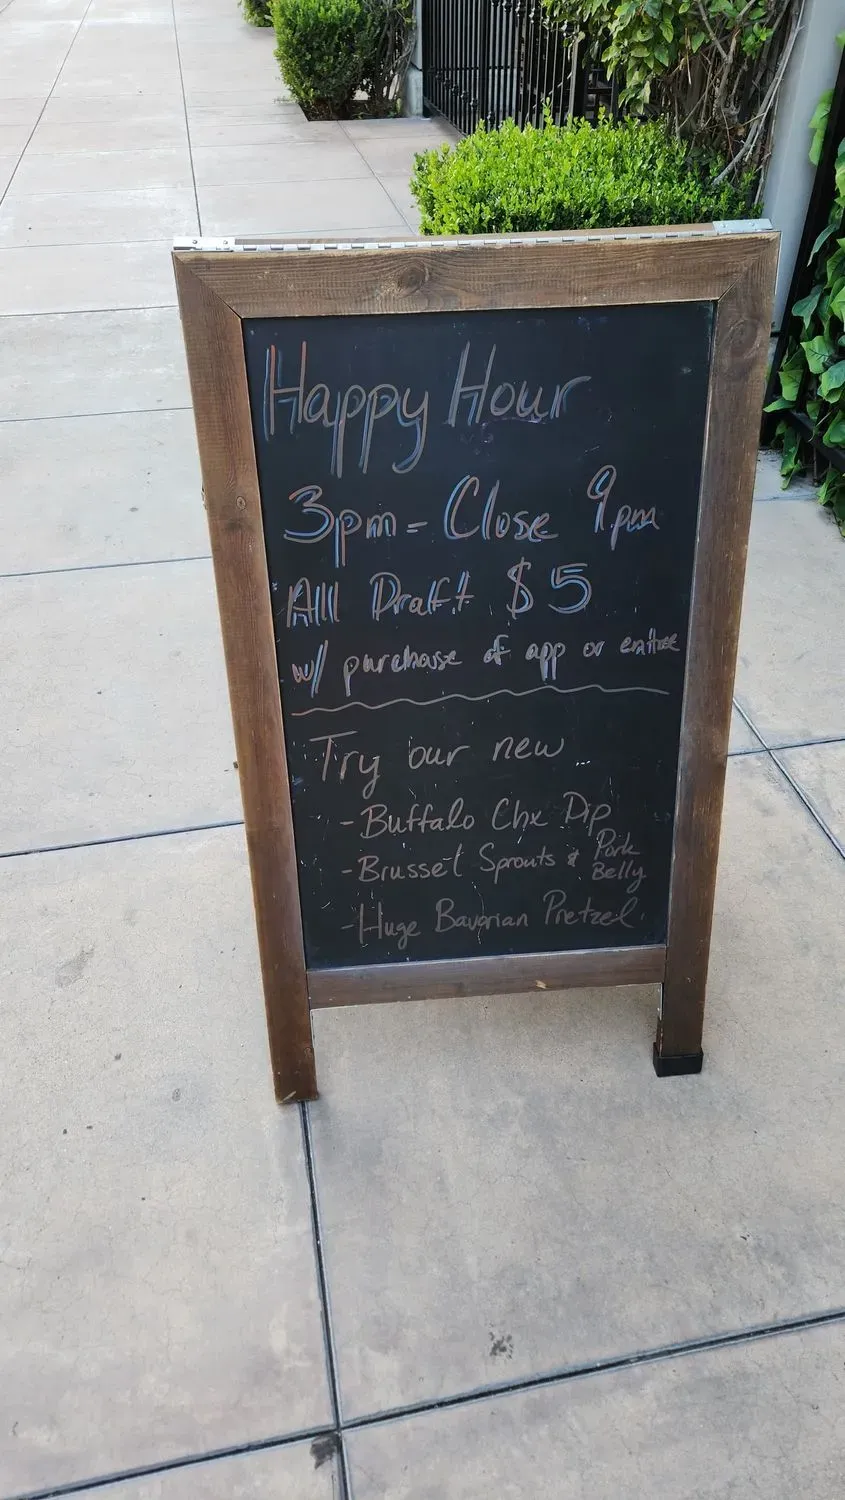 Happy Hour
3pm - Close 9pm
All Draft $5
w/ purchase of app or entree
Try our new
- Buffalo Chx Dip
- Brussel Sprouts & Pork Belly
- Huge Bavarian Pretzel